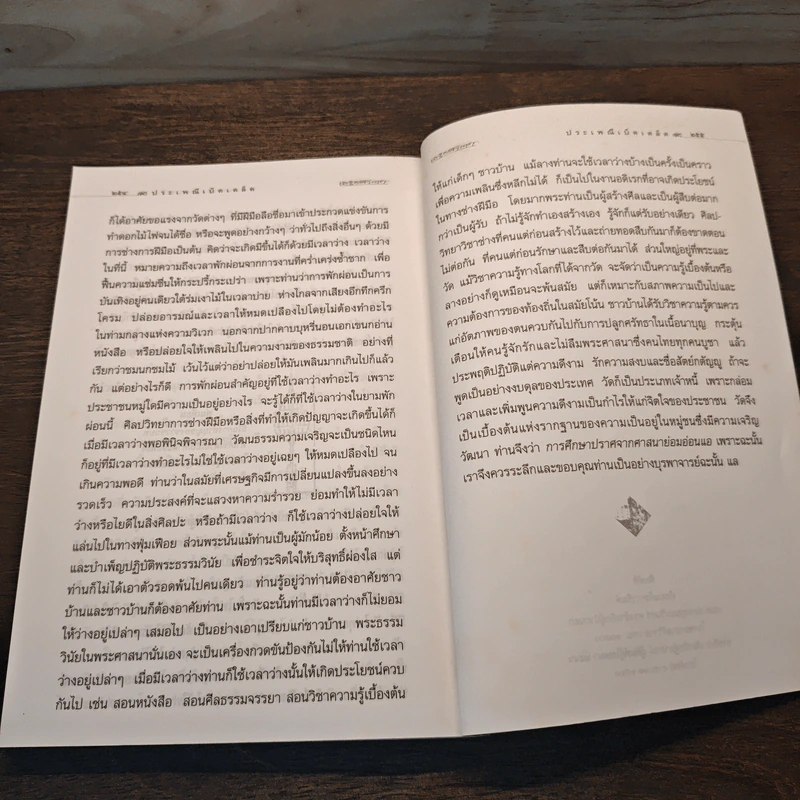 ๒๕๔ ประเพณีเบ็ดเตล็ด
ก็ได้อาศัยขอแรงจากวัดต่างๆ ที่มีฝีมือลือชื่อมาเข้าประกวดแข่งขันการ
ทำดอกไม้ไฟจนได้ชื่อ หรือจะพูดอย่างกว้างๆ ว่าทั่วไปถึงสิ่งอื่นๆ ด้วยมี
การช่างการฝีมือเป็นต้น คิดว่าจะเกิดมีขึ้นได้ก็ด้วยมีเวลาว่าง เวลาว่าง
ในที่นี้ หมายความถึงเวลาพักผ่อนจากการงานที่คร่ำเคร่งซ้ำซาก เพื่อ
ฟื้นความแช่มชื่นให้กระปรี้กระเปร่า เพราะท่านว่าการพักผ่อนเป็นการ
บันเทิงอยู่คนเดียวใต้ร่มเงาไม้ในเวลาบ่าย ห่างไกลจากเสียงอึกทึกครึก
โครม ปล่อยอารมณ์และเวลาให้หมดเปลืองไปโดยไม่ต้องทำอะไร
ในท่ามกลางแห่งความวิเวก นอกจากปากคาบบุหรี่นอนเอกเขนกอ่าน
หนังสือ หรือปล่อยใจให้เพลินไปในความงามของธรรมชาติ อย่างที่
เรียกว่าชมนกชมไม้ เว้นไว้แต่ว่าอย่าปล่อยให้มันเพลินมากเกินไปก็แล้ว
กัน แต่อย่างไรก็ดี การพักผ่อนสำคัญอยู่ที่ใช้เวลาว่างทำอะไร เพราะ
ประชาชนหมู่ใดมีความเป็นอยู่อย่างไร จะรู้ได้ก็ที่ใช้เวลาว่างในยามพัก
ผ่อนนี้ ศิลปวิทยาการช่างฝีมือหรือสิ่งที่ทำให้เกิดปัญญาจะเกิดขึ้นได้ก็
เมื่อมีเวลาว่างพอพินิจพิจารณา วัฒนธรรมความเจริญจะเป็นชนิดไหน
ก็อยู่ที่มีเวลาว่างทำอะไรไม่ใช่ใช้เวลาว่างอยู่เฉยๆ ให้หมดเปลืองไป จน
เกินความพอดี ท่านว่าในสมัยที่เศรษฐกิจมีการเปลี่ยนแปลงขึ้นลงอย่าง
รวดเร็ว ความประสงค์ที่จะแสวงหาความร่ำรวย ย่อมทำให้ไม่มีเวลา
ว่างหรือไยดีในสิ่งศิลปะ หรือถ้ามีเวลาว่าง ก็ใช้เวลาว่างปล่อยใจให้
แล่นไปในทางฟุ่มเฟือย ส่วนพระนั้นแม้ท่านเป็นผู้มักน้อย ตั้งหน้าศึกษา
และบำเพ็ญปฏิบัติพระธรรมวินัย เพื่อชำระจิตใจให้บริสุทธิ์ผ่องใส แต่
ท่านก็ไม่ได้เอาตัวรอดพ้นไปคนเดียว ท่านรู้อยู่ว่าท่านต้องอาศัยชาว
บ้านและชาวบ้านก็ต้องอาศัยท่าน เพราะฉะนั้นท่านมีเวลาว่างก็ไม่ยอม
ให้ว่างอยู่เปล่าๆ เสมอไป เป็นอย่างเอาเปรียบแก่ชาวบ้าน พระธรรม
วินัยในพระศาสนานั่นเอง จะเป็นเครื่องกวดขันป้องกันไม่ให้ท่านใช้เวลา
ว่างอยู่เปล่าๆ เมื่อมีเวลาว่างท่านก็ใช้เวลาว่างนั้นให้เกิดประโยชน์ควบ
กันไป เช่น สอนหนังสือ สอนศีลธรรมจรรยา สอนวิชาความรู้เบื้องต้น
ประเพณีเบ็ดเตล็ด ๒๕๕
ให้แก่เด็กๆ ชาวบ้าน แม้ลางท่านจะใช้เวลาว่างบ้างเป็นครั้งเป็นคราว
เพื่อความเพลินซึ่งหลีกไม่ได้ ก็เป็นไปในงานอดิเรกที่อาจเกิดประโยชน์
ในทางช่างฝีมือ โดยมากพระท่านเป็นผู้สร้างศิลและเป็นผู้สืบต่อมาก
กว่าเป็นผู้รับ ถ้าไม่รู้จักทำเองสร้างเอง รู้จักก็แต่รับอย่างเดียว ศิลป-
วิทยาวิชาช่างที่คนแต่ก่อนสร้างไว้และถ่ายทอดสืบกันมาก็ต้องขาดตอน
ไม่ต่อกัน ที่คนแต่ก่อนรักษาและสืบต่อกันมาได้ ส่วนใหญ่อยู่ที่พระและ
วัด แม้วิชาความรู้ทางโลกที่ได้จากวัด จะจัดว่าเป็นความรู้เบื้องต้นหรือ
ลางอย่างก็ดูเหมือนจะพ้นสมัย แต่ก็เหมาะกับสภาพความเป็นไปและ
ความต้องการของท้องถิ่นในสมัยโน้น ชาวบ้านได้รับวิชาความรู้ตามควร
แก่อัตภาพของตนควบกันไปกับการปลูกศรัทธาในเนื้อนาบุญ กระตุ้น
เตือนให้คนรู้จักรักและไม่ลืมพระศาสนาซึ่งคนไทยทุกคนบูชา แล้ว
ประพฤติปฏิบัติแต่ความดีงาม รักความสงบและซื่อสัตย์กตัญญู ถ้าจะ
พูดเป็นอย่างงบดุลของประเทศ วัดก็เป็นประเภทเจ้าหนี้ เพราะกล่อม
เวลาและเพิ่มพูนความดีงามเป็นกำไรให้แก่จิตใจของประชาชน วัดจึง
เป็นเบื้องต้นแห่งรากฐานของความเป็นอยู่ในหมู่ชนซึ่งมีความเจริญ
วัฒนา ท่านจึงว่า การศึกษาปราศจากศาสนาย่อมอ่อนแอ เพราะฉะนั้น
เราจึงควรระลึกและขอบคุณท่านเป็นอย่างบุรพาจารย์ฉะนั้น แล